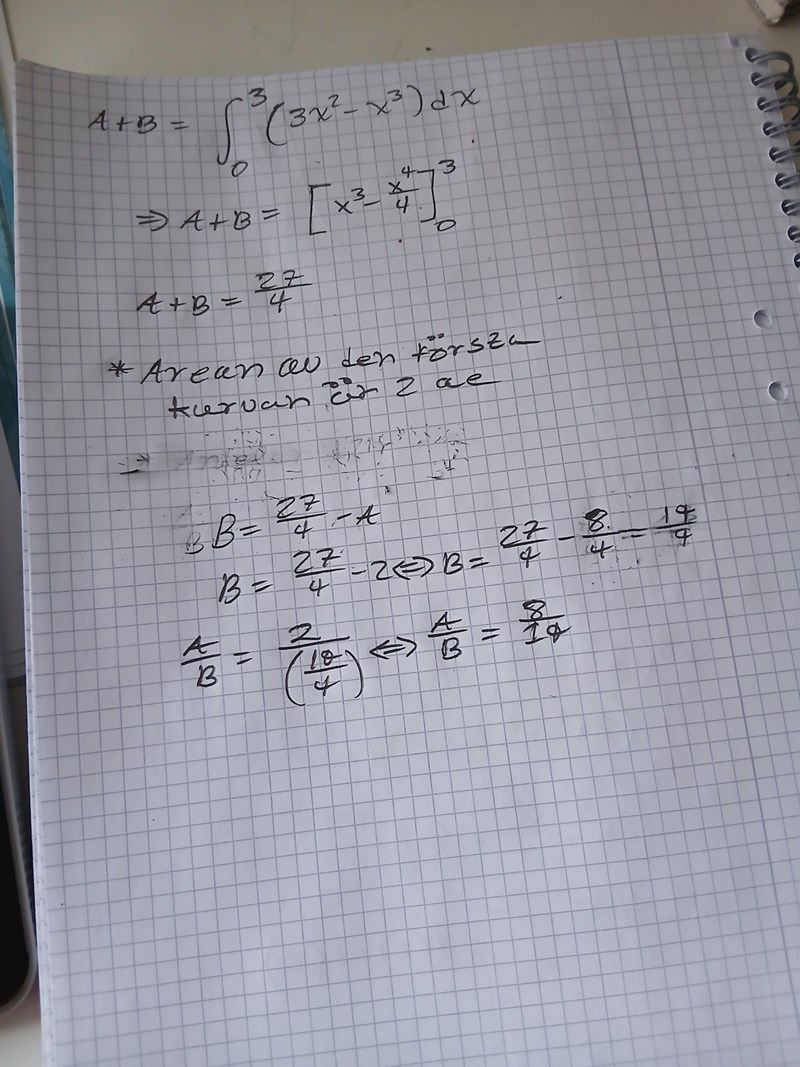 A+B = ∫₀³ (3x² - x³) dx
⇒ A+B = [x³ - x⁴/4]₀³
A+B = 27/4
* Arean av den första
kurvan är 2 ae
B = 27/4 - A
B = 27/4 - 2 ⇔ B = 27/4 - 8/4 = 19/4
A/B = 2/(19/4) ⇔ A/B = 8/19